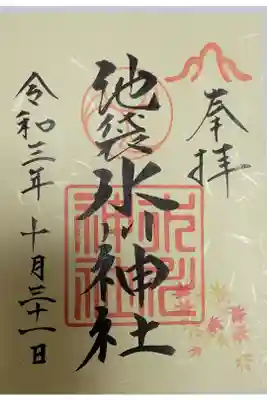 奉拝
池袋氷川神社
氷川
神社
令和三年 十月三十一日